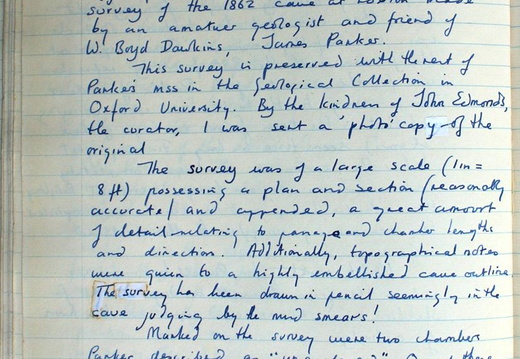 survey of the 1862 cave at made
by an amatuer geologist and friend of
W. Boyd Dawkins, James Parker.
This survey is preserved with the rest of
Parker's mss in the Geological Collection in
Oxford University. By the kindness of John Edmonds,
the curator, I was sent a 'photo' copy of the
original
The survey was of a large scale (1in =
8ft) possessing a plan and section (reasonally
accurate) and appended, a great amount
of detail relating to passage and chamber lengths
and direction. Additionally, topographical notes
were given to a highly embellished cave outline.
The survey has been drawn in pencil seemingly in the
cave judging by the mud smears!
Marked on the survey were two chambers
Parker described as